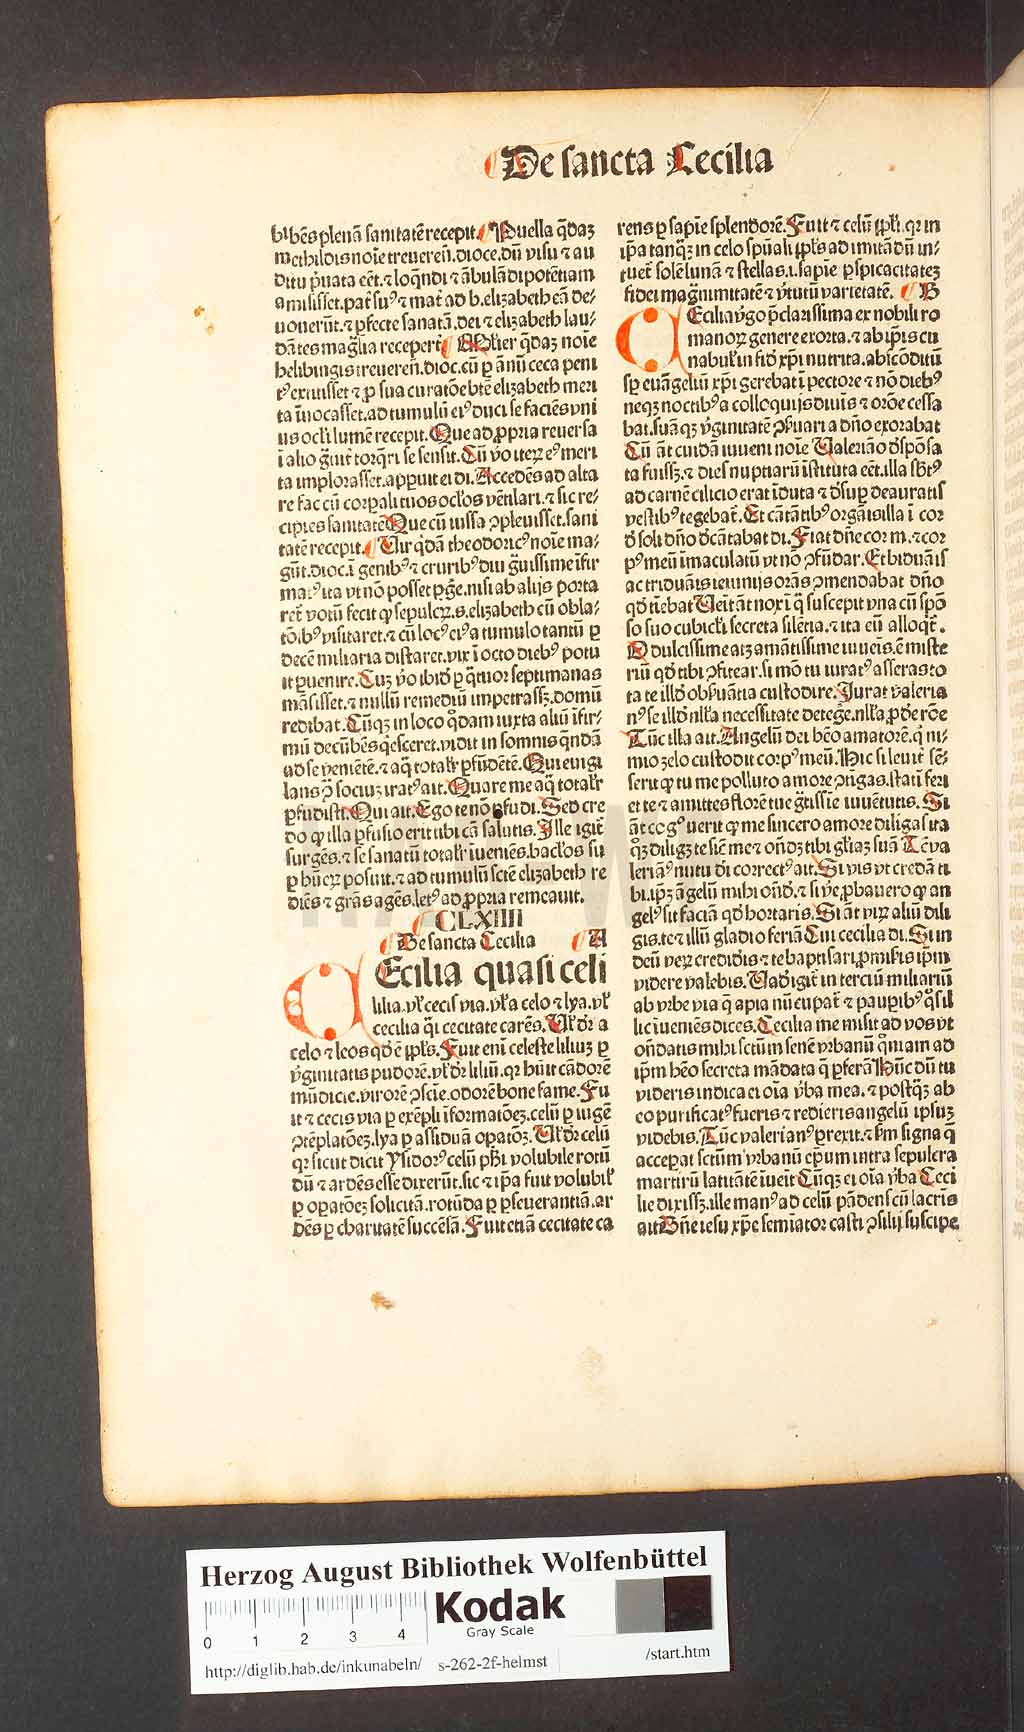 De sancta Cecilia
bibēs plenā sanitatē recepit. Puella q̄daꝫ
mcthildis noīe treuereñ. dioce. dū visu ⁊ au
ditu p̄uata eēt. ⁊ loq̄ndi ⁊ ābulādi potētiam
amisisset. pat̄ suꝰ ⁊ mat̄ ad b. elizabeth eā de⸗
uouerūt. ⁊ ꝑfecte sanatā. dei ⁊ elizabeth lau⸗
dātes mag̃lia recepert̄ Mulier q̄daꝫ noīe
helibingis treuereñ. dioc. cū ꝑ ānū ceca peni
tꝰ extitisset ⁊ ꝓ sua curatōe btē elizabeth meri
ta īuocasset. ad tumulū eiꝰ duci se faciēs vni
us ocl̓i lumē recepit. Que ad ꝓpria reuersa
ī alio g̃uit̄ torq̄ri se sensit. Cū v̓o iteꝝ eiꝰ meri
ta implorasset. apparuit ei di. Accedēs ad alta
re fac cū corꝑali tuos ocl̓os vētilari. ⁊ sic re⸗
cipies sanitatē Que cū iussa ꝯpleuisset. sani
tatē recepit. Vir q̄dā theodoricꝰ noīe ma⸗
gūt. dioc. ī genibꝰ ⁊ cruribꝰ diu g̃uissime īfir
matꝰ ita vt nō posset ꝑg̃e. nisi ab alijs porta
ret̄ votū fecit ꝙ sepulcꝝ. s. elizabeth cū obla⸗
tōibꝰ visitaret. ⁊ cū locꝰ eiꝰ a tumulo tantū ꝑ
decē miliaria distaret. vix ī octo diebꝰ potu
it ꝑuenire. Cuꝫ v̓o ibid̓ ꝑ q̄tuor septimanas
māsisset. ⁊ nullū remediū impetrassꝫ. domū
redibat. Cūqꝫ in loco q̊dam iuxta aliū īfir⸗
mū decūbēs q̄esceret. vidit in somnis q̄ndā
ad se veniētē. ⁊ aq̄ total̓r ꝑfūdētē. Qui euigi
lans ꝯ̄ sociuꝫ iratꝰ ait. Quare me aq̄ total̓r
ꝑfudisti. Qui ait. Ego te nō ꝑfudi. Sed cre
do ꝙ illa ꝑfusio erit tibi cā salutis. Ille igit̄
surgēs. ⁊ se sanatū total̓r īueniēs. bacl̓os su
ꝑ hūeꝝ posuit. ⁊ ad tumulū scte elizabeth re
diēs ⁊ grās agēs. letꝰ ad ꝓpria remeauit.
CLXIIII
De sancta Cecilia A
Ecilia quasi celi
lilia. vl̓ cecis via. vl̓ a celo ⁊ lya. vl̓
cecilia q̄i cecitate carēs. Vl̓ dr̄ a
celo ⁊ leos qd̓ ē ppl̓s. Fuit enī celeste liliuꝫ ꝑ
v̓ginitatis pudorē. vl̓ dr̄ liliū. qꝛ hūit cādorē
mūdicie. virorē ꝯscīe. odorē bone fame. Fu
it ⁊ cecis via ꝑ exēpli īformatōeꝫ. celū ꝑ iugē
ꝯtēplatōeꝫ. lya ꝑ assiduā oꝑatōꝫ. Vl̓ dr̄ celū
qꝛ sicut dicit Ysidorꝰ celū ph̓i volubile rotū
dū ⁊ ardēs esse dixerūt. sic ⁊ ip̄a fuit volubil̓
ꝑ oꝑatōeꝫ solicitā. rotūda ꝑ ꝑseuerantiā. ar
dēs ꝑ charitatē succēsā. Fuit etiā cecitate ca
rens ꝑ sapīe splendorē. Fuit ⁊ celū ppl̓i. qꝛ in
ip̄a tanqꝫ in celo spūali ppl̓s ad imitādū in⸗
tuet̄ solē lunā ⁊ stellas. i. sapīe ꝑspicacitateꝫ
fidei mag̃nimitatē ⁊ v̓tutū varietatē. B
Ecilia v̓go p̄clarissima ex nobili ro
manoꝝ genere exorta. ⁊ ab ip̄is cu
nabul̓ in fid̓ xp̄i nutrita. absconditū
sp̄ euāgeliū xp̄i gerebat ī pectore ⁊ nō diebꝰ
neqꝫ noctibꝰ a colloquijs diuīs ⁊ orōe cessa
bat. suāqꝫ v̓ginitatē ꝯseruari a dn̄o exorabat
Cū āt cuidā iuueni noīe Valeriāo d̓spōsa
ta fuissꝫ. ⁊ dies nuptiarū īstituta eēt. illa sb̓tꝰ
ad carnē cilicio erat īduta ⁊ d̓suꝑ deauratis
vestibꝰ tegebat̄. Et cātātibꝰ orgāis illa ī cor
d̓ soli dn̄o d̓cātabat di. Fiat dn̄e cor m. ⁊ cor
pꝰ meū īmaculatū vt nō ꝯfūdar. Et biduāis
ac triduāis ieiunijs orās ꝯmendabat dn̄o
qd̓ timebat Uēit āt nox ī q̄ suscepit vna cū spō
so suo cubicl̓i secreta silētia. ⁊ ita eū alloqt̄.
O dulcissime atqꝫ amātissime iuueīs. ē miste
riū qd̓ tibi ꝯfitear. si mō tu iuratꝰ asseras to
ta te illd̓ obs̓uātia custodire. Jurat valeria
nꝰ se illd̓ nl̓la necessitate deteg̃e. nl̓la ꝓd̓e rōe
Tūc illa ait. Angelū dei hēo amatorē. q̄ ni⸗
mio zelo custodit corpꝰ meū. Hic si leuit̄ sē⸗
serit ꝙ tu me polluto amore ꝯtigas. statī feri
et te ⁊ amittes florē tue g̃tissīe iuuētutis. Si
āt cogꝰuerit ꝙ me sincero amore diligas ita
qꝫ diligꝫ te sic̄ me ⁊ on̄dꝫ tibi gl̓iaꝫ suā Tc̄ va
leriāꝰ nutu di correctꝰ ait. Si vis vt credā ti
bi. ip̄ꝫ āgelū mihi on̄d̓. ⁊ si v̓e ꝓbauero ꝙ an
gelꝰ sit faciā qd̓ hortaris. Si āt viꝝ aliū dili
gis. te ⁊ illū gladio feriā Cui cecilia di. Si in
deū veꝝ credid̓is ⁊ te baptisari ꝓmiseris ip̄m
videre valebis. Vad̓ igit̄ in terciū miliariū
ab vrbe via q̄ apia nūcupat̄ ⁊ pauꝑibꝰ q̊s il
lic īuenies dices. Cecilia me misit ad vos vt
on̄datis mihi sctm̄ senē vrbanū qm̄iam ad
ip̄m hēo secreta mādata q̄ ꝑferā Hūc dū tu
videris indica ei oīa v̓ba mea. ⁊ postqꝫ ab
eo purificatꝰ fueris ⁊ redieris angelū ipsuꝫ
videbis. Tūc valerianꝰ ꝑrexit. ⁊ s̓m signa q̄
acceꝑat sctm̄ vrbanū ep̄um intra sepulcra
martirū latitātē īueīt Cūqꝫ ei oīa v̓ba Ceci
lie dixissꝫ. ille manꝰ ad celū pādens cū lacris
ait Dn̄e iesu xp̄e semiator casti ꝯsilij suscipe
Herzog August Bibliothek Wolfenbüttel
0 1 2 3 4
Kodak
Gray Scale
http://diglib.hab.de/inkunabeln/ s-262-2f-helmst /start.htm